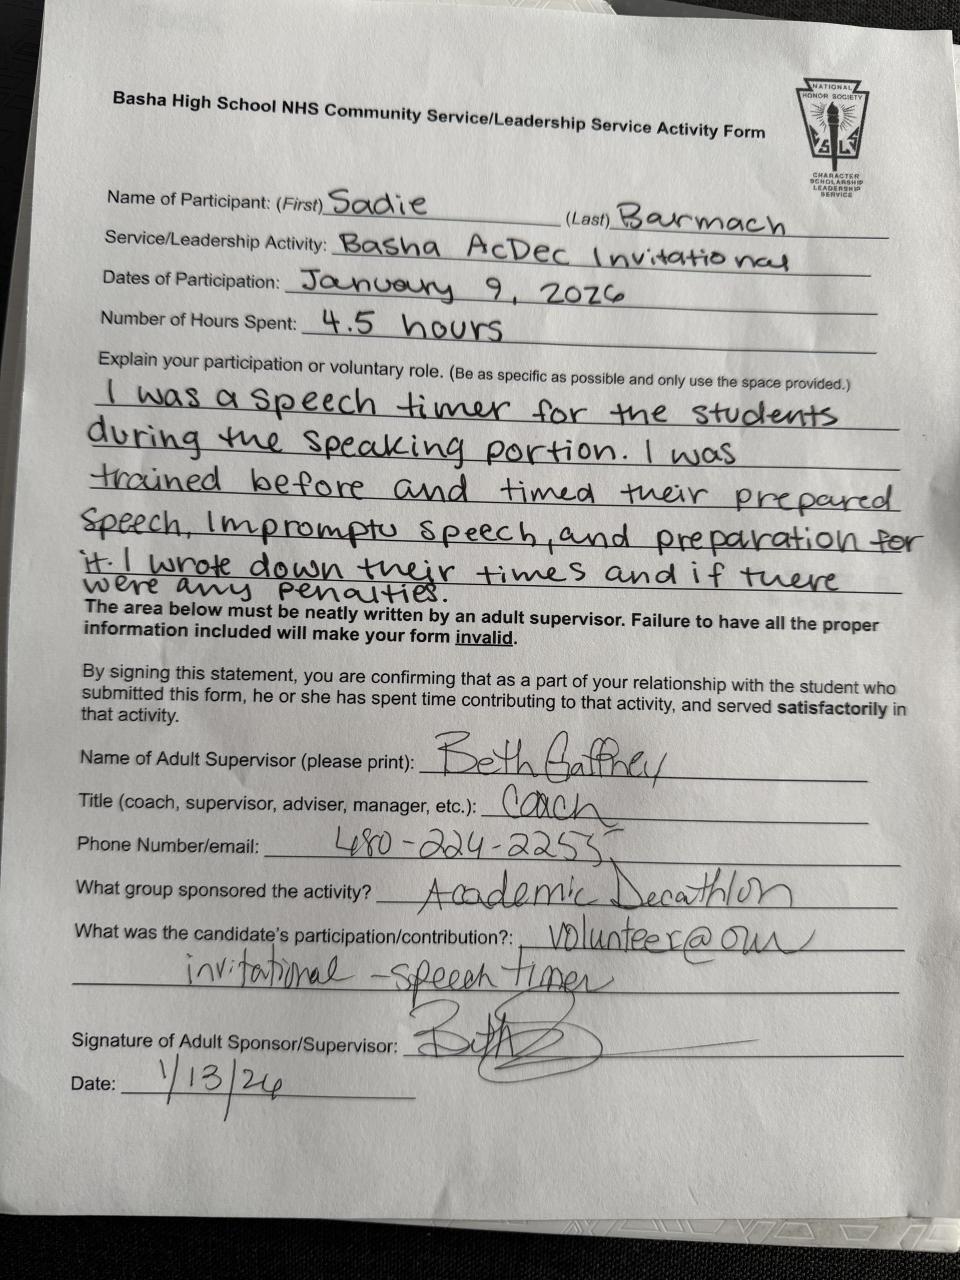 Basha High School NHS Community Service/Leadership Service Activity Form
NATIONAL
HONOR SOCIETY
S L S
CHARACTER
SCHOLARSHIP
LEADERSHIP
SERVICE
Name of Participant: (First) Sadie (Last) Barmach
Service/Leadership Activity: Basha AcDec Invitational
Dates of Participation: January 9, 2026
Number of Hours Spent: 4.5 hours
Explain your participation or voluntary role. (Be as specific as possible and only use the space provided.)
I was a speech timer for the students
during the speaking portion. I was
trained before and timed their prepared
speech, Impromptu speech, and preparation for
it. I wrote down their times and if there
were any penalties.
The area below must be neatly written by an adult supervisor. Failure to have all the proper
information included will make your form invalid.
By signing this statement, you are confirming that as a part of your relationship with the student who
submitted this form, he or she has spent time contributing to that activity, and served satisfactorily in
that activity.
Name of Adult Supervisor (please print): Beth Gaffney
Title (coach, supervisor, adviser, manager, etc.): Coach
Phone Number/email: 480-224-2255
What group sponsored the activity? Academic Decathlon
What was the candidate's participation/contribution?: volunteer@our
invitational - speech timer
Signature of Adult Sponsor/Supervisor:
Date: 1/13/26